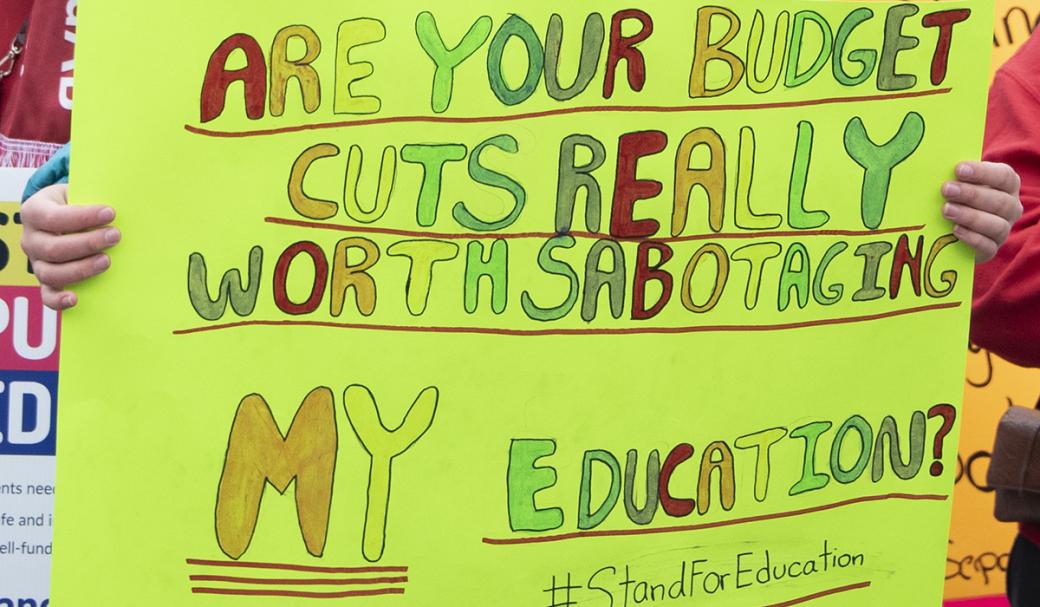 ARE YOUR BUDGET
CUTS REALLY
WORTH SABOTAGING
MY EDUCATION?
#StandForEducation
PU
ED
ents need
fe and i
ell-fund